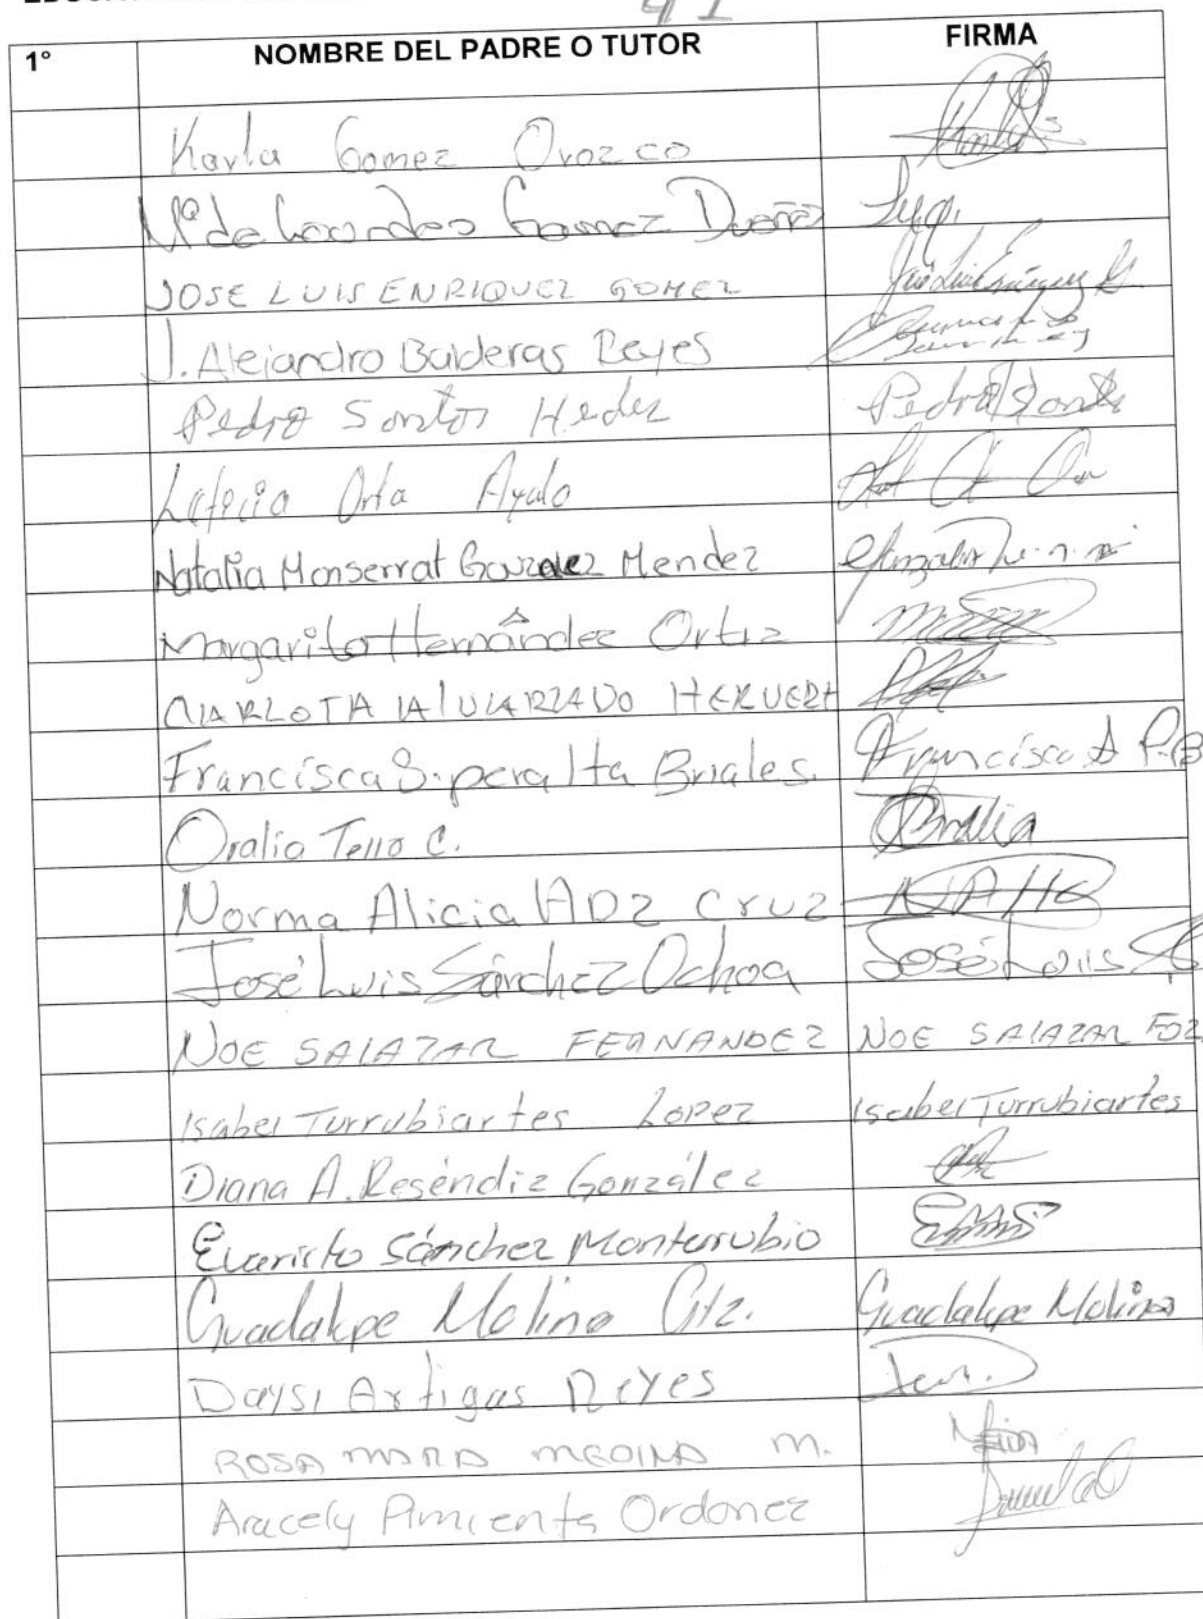 41
1° NOMBRE DEL PADRE O TUTOR FIRMA
Karla Gomez Orozco
Mª de Lourdes Gomez Dueñez
JOSE LUIS ENRIQUEZ GOMEZ José Luis Enríquez G
J. Alejandro Balderas Reyes
Pedro Santos Hedez Pedro Santos
Leticia Orta Ayala
Natalia Monserrat Gonzalez Mendez
Margarito Hernández Ortiz
CARLOTA ALVARADO HERVERT
Francisca S. peralta Briales. Francisca S P.B
Oralia Tello C. Oralia
Norma Alicia HDZ Cruz NAHC
José Luis Sánchez Ochoa José Luis
NOE SALAZAR FERNANDEZ NOE SALAZAR FDZ
Isabel Turrubiartes Lopez Isabel Turrubiartes
Diana A. Reséndiz González
Evaristo Sánchez Monterrubio
Guadalupe Molina Gtz. Guadalupe Molina
Daysi Artigas Reyes
ROSA MARIA MEDINA M.
Aracely Pimienta Ordonez